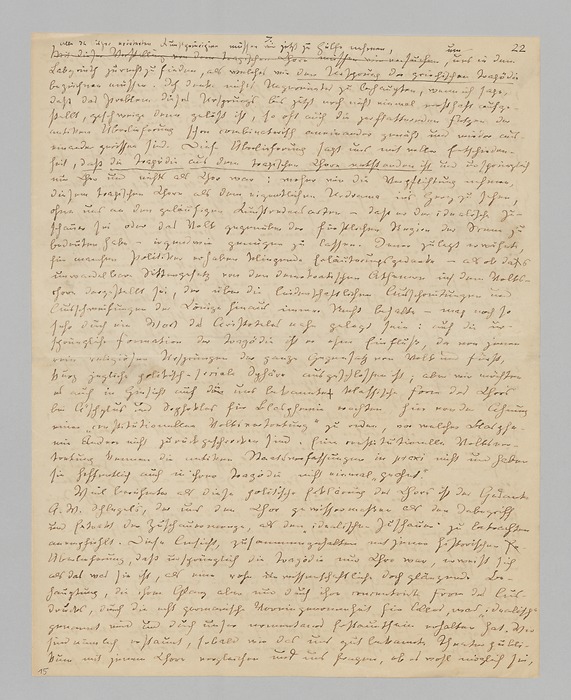 Alle die bisher erörterten Kunstprincipien müssen wir jetzt zu Hülfe nehmen, um 22
uns in dem
Labyrinth zurecht zu finden, als welches wir den Ursprung der griechischen Tragödie
bezeichnen müssen. Ich denke nichts Ungereimtes zu behaupten, wenn ich sage,
daß das Problem dieses Ursprungs bis jetzt noch nicht einmal ernsthaft aufge-
stellt, geschweige denn gelöst ist, so oft auch die zerflatternden Fetzen der
antiken Überlieferung schon combinatorisch aneinander genäht und wieder aus-
einander gerissen sind. Diese Überlieferung sagt uns mit voller Entschieden-
heit, daß die Tragödie aus dem tragischen Chore entstanden ist und ursprünglich
nur Chor und nichts als Chor war: woher wir die Verpflichtung nehmen,
diesem tragischen Chore als dem eigentlichen Urdrama ins Herz zu sehen,
ohne uns an den geläufigen Kunstredensarten – daß er der idealische Zu-
schauer sei oder das Volk gegenüber der fürstlichen Region der Scene zu
bedeuten habe – irgendwie genügen zu lassen. Jener zuletzt erwähnte,
für manchen Politiker erhaben klingende Erläuterungsgedanke – als ob das
unwandelbare Sittengesetz von den demokratischen Athenern in dem Volks-
chore dargestellt sei, der über die leidenschaftlichen Ausschreitungen und
Ausschweifungen der Könige hinaus immer Recht behalte – mag noch so
sehr durch ein Wort des Aristoteles nahe gelegt sein: auf die ur-
sprüngliche Formation der Tragödie ist er ohne Einfluß, da von jenen
rein religiösen Ursprüngen der ganze Gegensatz von Volk und Fürst,
kurz jegliche politisch-sociale Sphäre ausgeschlossen ist; aber wir möchten
es auch in Hinsicht auf die uns bekannte klassische Form des Chors
bei Äschylus und Sophokles für Blasphemie erachten, hier von der Ahnung
einer „constitutionellen Volksvertretung“ zu reden, vor welcher Blasphe-
mie Andere nicht zurückgeschrocken sind. Eine constitutionelle Volksver-
tretung kennen die antiken Staatsverfassungen in praxi nicht und haben
sie hoffentlich auch in ihrer Tragödie nicht einmal „geahnt“.
Viel berühmter als diese politische Erklärung des Chors ist der Gedanke
A. W. Schlegels, der uns den Chor gewissermaßen als den Inbegriff
und Extrakt der Zuschauermenge, als den „idealischen Zuschauer“ zu betrachten
anempfiehlt. Diese Ansicht, zusammengehalten mit jener historischen
Überlieferung, daß ursprünglich die Tragödie nur Chor war, erweist sich
als das was sie ist, als eine rohe unwissenschaftliche doch glänzende Be-
hauptung, die ihren Glanz aber nur durch ihre concentrirte Form des Aus-
drucks, durch die echt germanische Voreingenommenheit für Alles, was „idealisch“
genannt wird und durch unser momentanes Erstauntsein erhalten hat. Wir
sind nämlich erstaunt, sobald wir das uns gut bekannte Theaterpubli-
kum mit jenem Chore vergleichen und uns fragen, ob es wohl möglich sei,